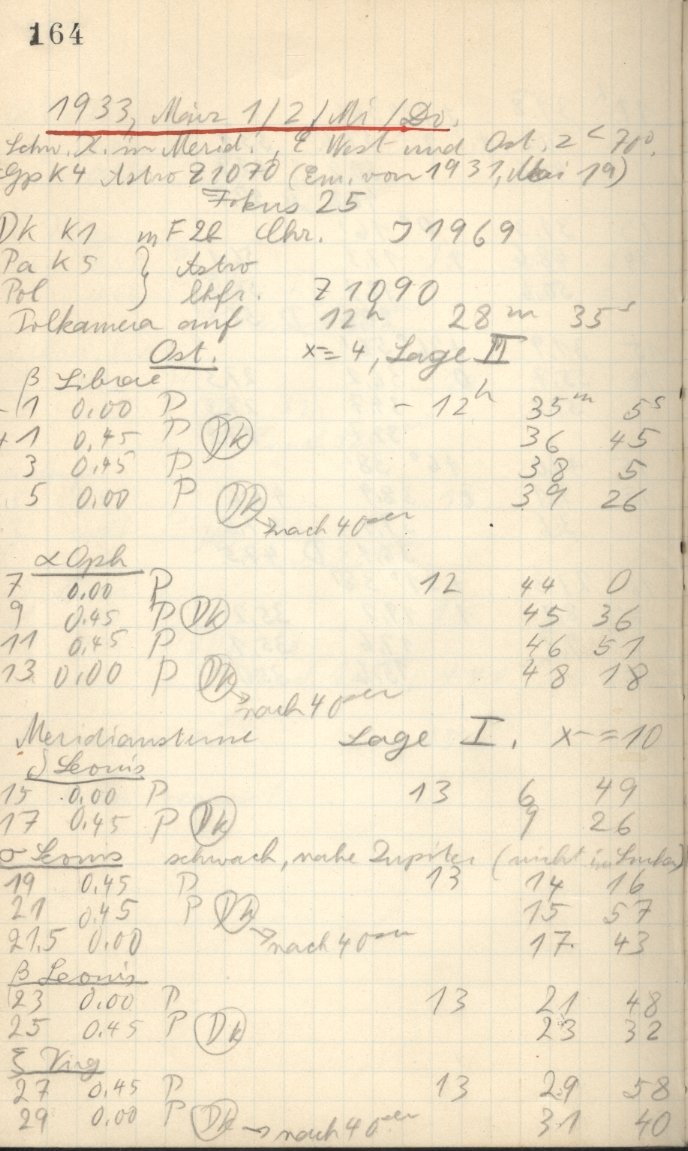 164
1933, März 1/2/Mi/Do.
Schw. Z. in Merid., E West und Ost. z < 70°.
GpK4 Astro Z1070 (Em. von 1931, Mai 19)
Fokus 25
DK K1 m F2b Chr. J 1969
Pa K5 } Astro
Pol } lhfr. Z 1090
Polkamera auf 12h 28m 35s
Ost. x = 4, Lage II
β Librae
-1 0.00 P - 12h 35m 5s
+1 0.45 P Dk 36 45
3 0.45 P 38 5
5 0.00 P Dk 39 26
→ nach 40sec
α Oph
7 0.00 P 12 44 0
9 0.45 P Dk 45 36
11 0.45 P 46 51
13 0.00 P Dk 48 18
→ nach 40sec
Meridiansterne Lage I. x = 10
δ Leonis
15 0.00 P 13 6 49
17 0.45 P Dk 9 26
σ Leonis schwach, nahe Jupiter (nicht im
19 0.45 P 13 14 16
21 0.45 P Dk 15 57
21,5 0.00 → nach 40sec 17 43
β Leonis
23 0.00 P 13 21 48
25 0.45 P Dk 23 32
ξ Virg
27 0.45 P 13 29 58
29 0.00 P Dk → nach 40sec 31 40